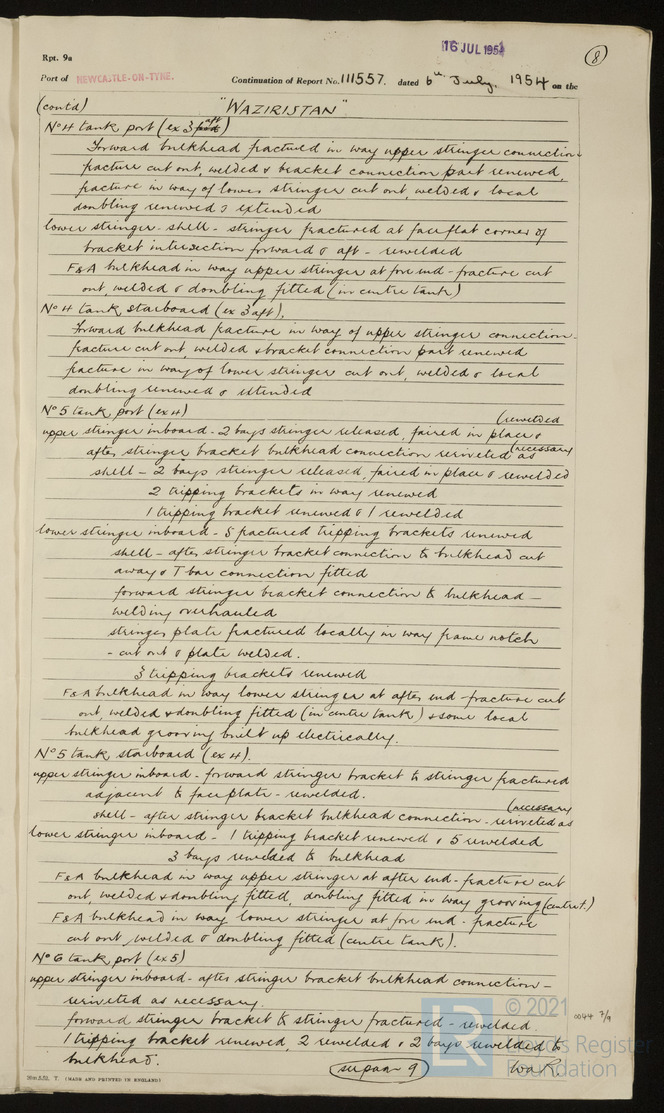 Rpt. 9a
16 JUL 1954
8
Port of NEWCASTLE-ON-TYNE. Continuation of Report No. 111557. dated 6th July, 1954 on the
(contd) "WAZIRISTAN"
No 4 tank port (ex 3 aft)
Forward bulkhead fractured in way upper stringer connection
fracture cut out, welded & bracket connection part renewed,
fracture in way of lower stringer cut out, welded & local
doubling renewed & extended
lower stringer - shell - stringer fractured at face flat corner of
bracket intersection forward & aft - rewelded
F & A bulkhead in way upper stringer at fore end - fracture cut
out, welded & doubling fitted (in centre tank)
No 4 tank starboard (ex 3 aft).
Forward bulkhead fracture in way of upper stringer connection
fracture cut out, welded & bracket connection part renewed
fracture in way of lower stringer cut out, welded & local
doubling renewed & extended
No 5 tank port (ex 4)
upper stringer inboard - 2 bays stringer released, faired in place & (rewelded
after stringer bracket bulkhead connection reriveted as (necessary
shell - 2 bays stringer released, faired in place & rewelded
2 tripping brackets in way renewed
1 tripping bracket renewed & 1 rewelded
lower stringer inboard - 5 fractured tripping brackets renewed
shell - after stringer bracket connection to bulkhead cut
away & T bar connection fitted
forward stringer bracket connection to bulkhead -
welding overhauled
stringer plate fractured locally in way frame notch
- cut out & plate welded.
3 tripping brackets renewed
F & A bulkhead in way lower stringer at after end - fracture cut
out, welded & doubling fitted (in centre tank) & some local
bulkhead grooving built up electrically.
No 5 tank starboard (ex 4).
upper stringer inboard - forward stringer bracket to stringer fractured
adjacent to faceplate - rewelded.
shell - after stringer bracket bulkhead connection - reriveted as (necessary
lower stringer inboard - 1 tripping bracket renewed & 5 rewelded
3 bays rewelded to bulkhead
F & A bulkhead in way upper stringer at after end - fracture cut
out, welded & doubling fitted, doubling fitted in way grooving (centre t.)
F & A bulkhead in way lower stringer at fore end - fracture
cut out welded & doubling fitted (centre tank).
No 6 tank port (ex 5)
upper stringer inboard - after stringer bracket bulkhead connection -
reriveted as necessary.
forward stringer bracket to stringer fractured - rewelded.
1 tripping bracket renewed, 2 rewelded & 2 bays rewelded to
bulkhead.
(MADE AND PRINTED IN ENGLAND)
LR © 2021
Lloyd's Register
Foundation
0044 7/9